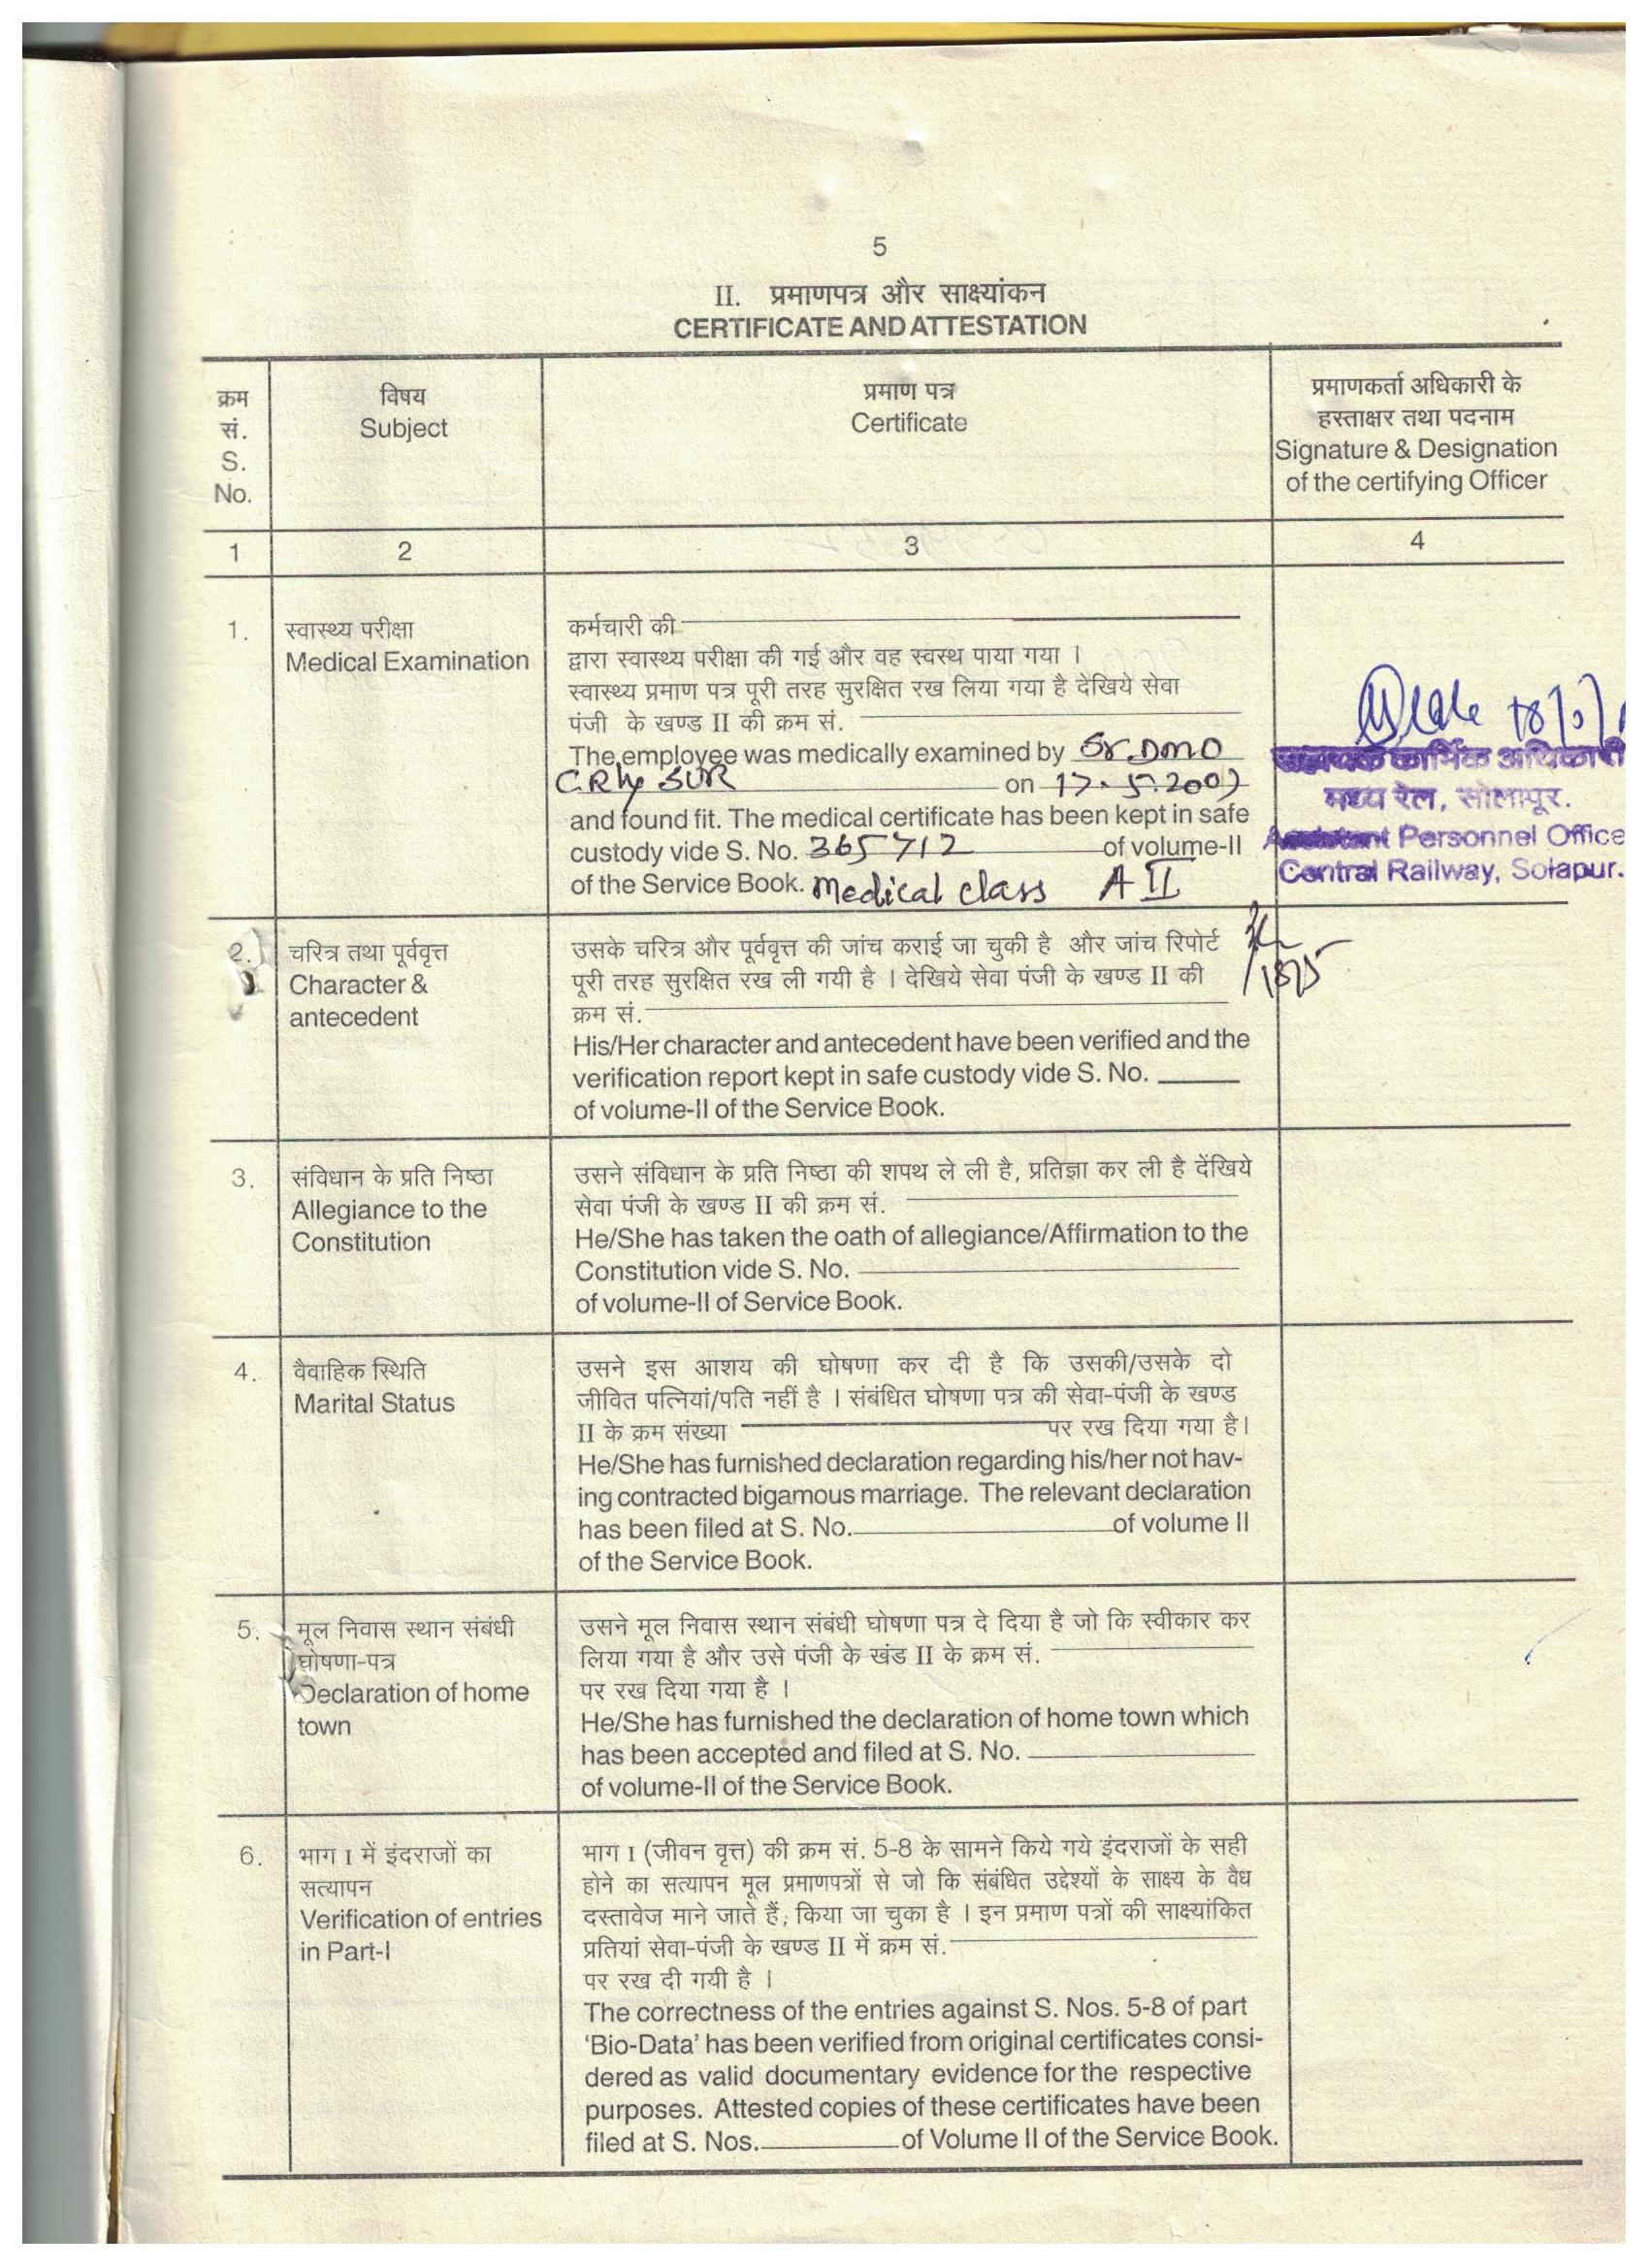 5
II. प्रमाणपत्र और साक्ष्यांकन
CERTIFICATE AND ATTESTATION
क्रम
सं.
S.
No.
विषय
Subject
प्रमाण पत्र
Certificate
प्रमाणकर्ता अधिकारी के
हस्ताक्षर तथा पदनाम
Signature & Designation
of the certifying Officer
1 2 3 4
1.
स्वास्थ्य परीक्षा
Medical Examination
कर्मचारी की
द्वारा स्वास्थ्य परीक्षा की गई और वह स्वस्थ पाया गया ।
स्वास्थ्य प्रमाण पत्र पूरी तरह सुरक्षित रख लिया गया है देखिये सेवा
पंजी के खण्ड II की क्रम सं.
The employee was medically examined by Sr. DMO
C.Rly SUR on 17.5.2007
and found fit. The medical certificate has been kept in safe
custody vide S. No. 365712 of volume-II
of the Service Book. Medical class A II
कार्मिक अधिकारी
मध्य रेल, सोलापूर.
Personnel Office
Central Railway, Solapur.
2.
चरित्र तथा पूर्ववृत्त
Character &
antecedent
उसके चरित्र और पूर्ववृत्त की जांच कराई जा चुकी है और जांच रिपोर्ट
पूरी तरह सुरक्षित रख ली गयी है । देखिये सेवा पंजी के खण्ड II की
क्रम सं.
His/Her character and antecedent have been verified and the
verification report kept in safe custody vide S. No.
of volume-II of the Service Book.
3.
संविधान के प्रति निष्ठा
Allegiance to the
Constitution
उसने संविधान के प्रति निष्ठा की शपथ ले ली है, प्रतिज्ञा कर ली है देंखिये
सेवा पंजी के खण्ड II की क्रम सं.
He/She has taken the oath of allegiance/Affirmation to the
Constitution vide S. No.
of volume-II of Service Book.
4.
वैवाहिक स्थिति
Marital Status
उसने इस आशय की घोषणा कर दी है कि उसकी/उसके दो
जीवित पत्नियां/पति नहीं है । संबंधित घोषणा पत्र की सेवा-पंजी के खण्ड
II के क्रम संख्या पर रख दिया गया है।
He/She has furnished declaration regarding his/her not hav-
ing contracted bigamous marriage. The relevant declaration
has been filed at S. No. of volume II
of the Service Book.
5.
मूल निवास स्थान संबंधी
घोषणा-पत्र
Declaration of home
town
उसने मूल निवास स्थान संबंधी घोषणा पत्र दे दिया है जो कि स्वीकार कर
लिया गया है और उसे पंजी के खंड II के क्रम सं.
पर रख दिया गया है ।
He/She has furnished the declaration of home town which
has been accepted and filed at S. No.
of volume-II of the Service Book.
6.
भाग I में इंदराजों का
सत्यापन
Verification of entries
in Part-I
भाग I (जीवन वृत्त) की क्रम सं. 5-8 के सामने किये गये इंदराजों के सही
होने का सत्यापन मूल प्रमाणपत्रों से जो कि संबंधित उद्देश्यों के साक्ष्य के वैध
दस्तावेज माने जाते हैं, किया जा चुका है । इन प्रमाण पत्रों की साक्ष्यांकित
प्रतियां सेवा-पंजी के खण्ड II में क्रम सं.
पर रख दी गयी है ।
The correctness of the entries against S. Nos. 5-8 of part
'Bio-Data' has been verified from original certificates consi-
dered as valid documentary evidence for the respective
purposes. Attested copies of these certificates have been
filed at S. Nos. of Volume II of the Service Book.